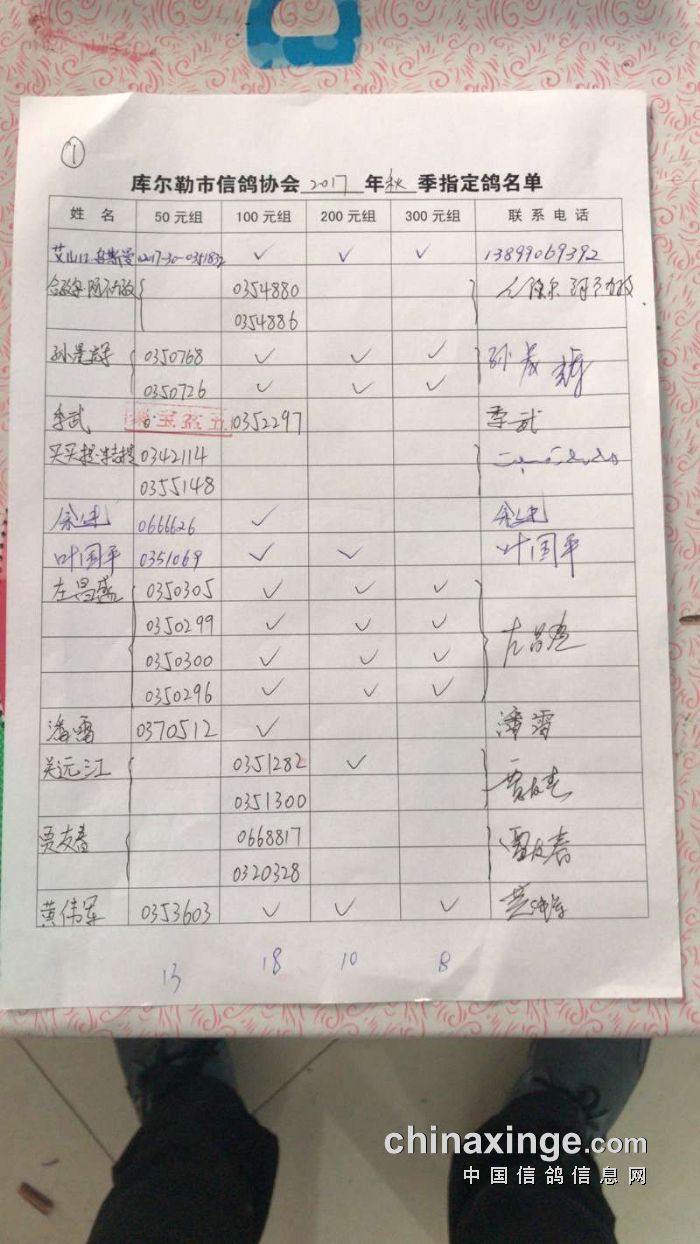 ①
库尔勒市信鸽协会 2017 年 秋 季指定鸽名单
姓 名 50元组 100元组 200元组 300元组 联系电话
2017-30-0351832 ✓ ✓ ✓ 13899069392
0354880
0354886
0350768 ✓ ✓ ✓
0350726 ✓ ✓ ✓
季武 0352297 季武
0342114
0355148
0666626 ✓
叶国平 0351069 ✓ ✓ 叶国平
左昌盛 0350305 ✓ ✓ ✓
0350299 ✓ ✓ ✓
0350300 ✓ ✓ ✓
0350296 ✓ ✓ ✓
潘雷 0370512 ✓ 潘雷
关远江 0351282 ✓
0351300
贾友春 0668817 贾友春
0320328
黄伟军 0353603 ✓ ✓ ✓ 黄伟军
13 18 10 8
chinaxinge.com
中国信鸽信息网